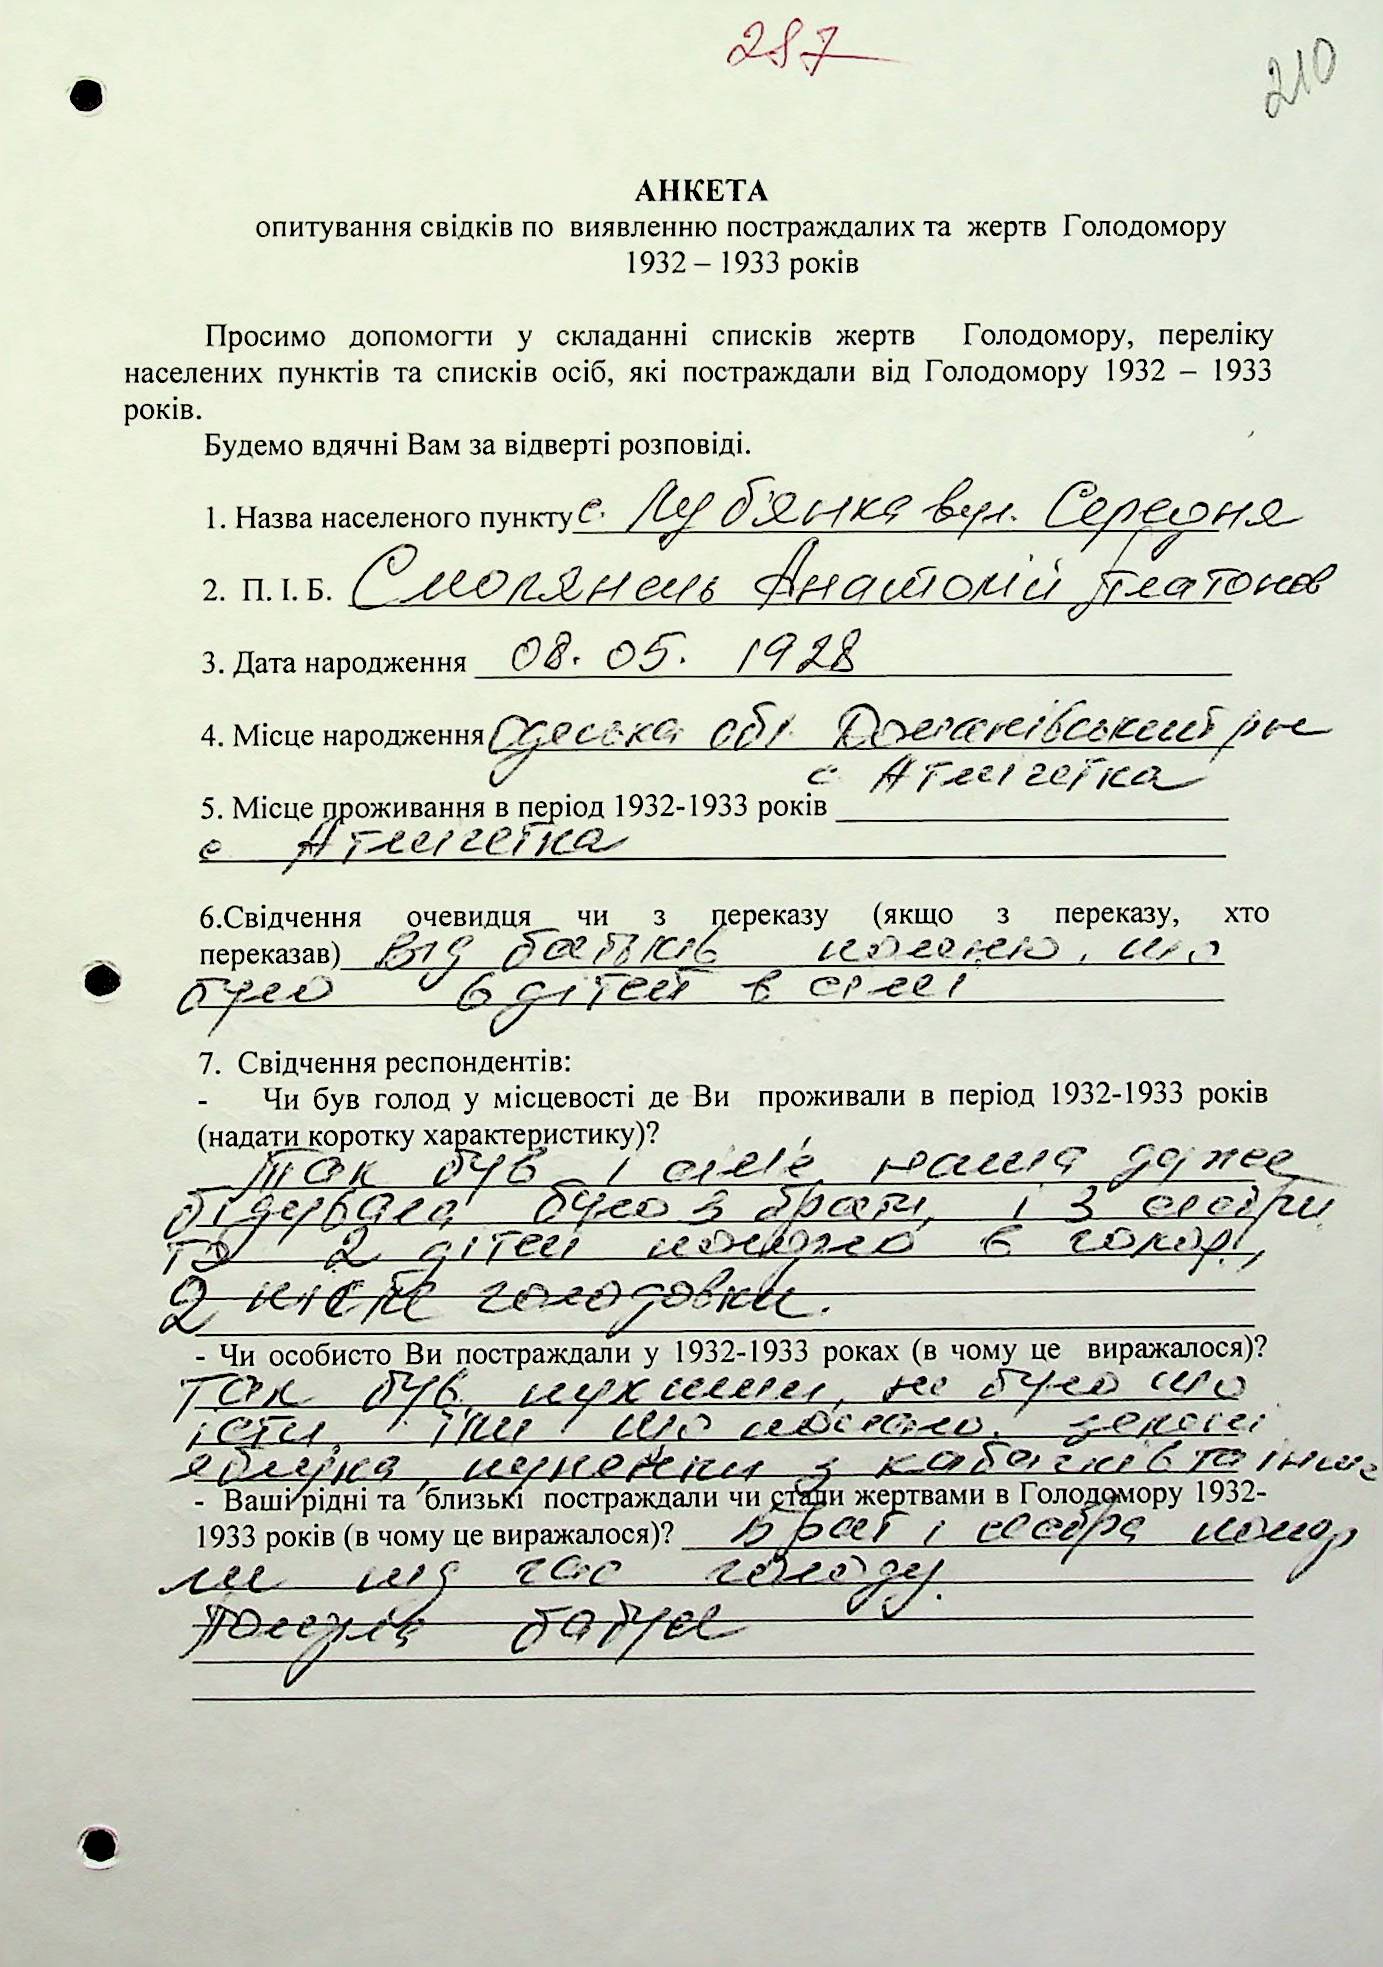 287
210
АНКЕТА
опитування свідків по виявленню постраждалих та жертв Голодомору
1932 – 1933 років
Просимо допомогти у складанні списків жертв Голодомору, переліку
населених пунктів та списків осіб, які постраждали від Голодомору 1932 – 1933
років.
Будемо вдячні Вам за відверті розповіді.
1. Назва населеного пункту с. Луб'янка вул. Середня
2. П. І. Б. Смолянець Анатолій Платонов
3. Дата народження 08. 05. 1928
4. Місце народження Одеська обл Доманівський рн
с Атмічетка
5. Місце проживання в період 1932-1933 років
с Атмічетка
6.Свідчення очевидця чи з переказу (якщо з переказу, хто
переказав) від батьків помню, що
було 6 дітей в сімі
7. Свідчення респондентів:
- Чи був голод у місцевості де Ви проживали в період 1932-1933 років
(надати коротку характеристику)?
Так був і сім'є наша дуже
бідувала було 3 брати, і 3 сестри
то 2 дітей померло в голод,
2 після голодовки.
- Чи особисто Ви постраждали у 1932-1933 роках (в чому це виражалося)?
Так був пухший, не було що
їсти, їли що попало. зелені
яблука, з кабачків та інше
- Ваші рідні та близькі постраждали чи стали жертвами в Голодомору 1932-
1933 років (в чому це виражалося)? Брат і сестра помер
ли під час голоду.
Померла бабуся